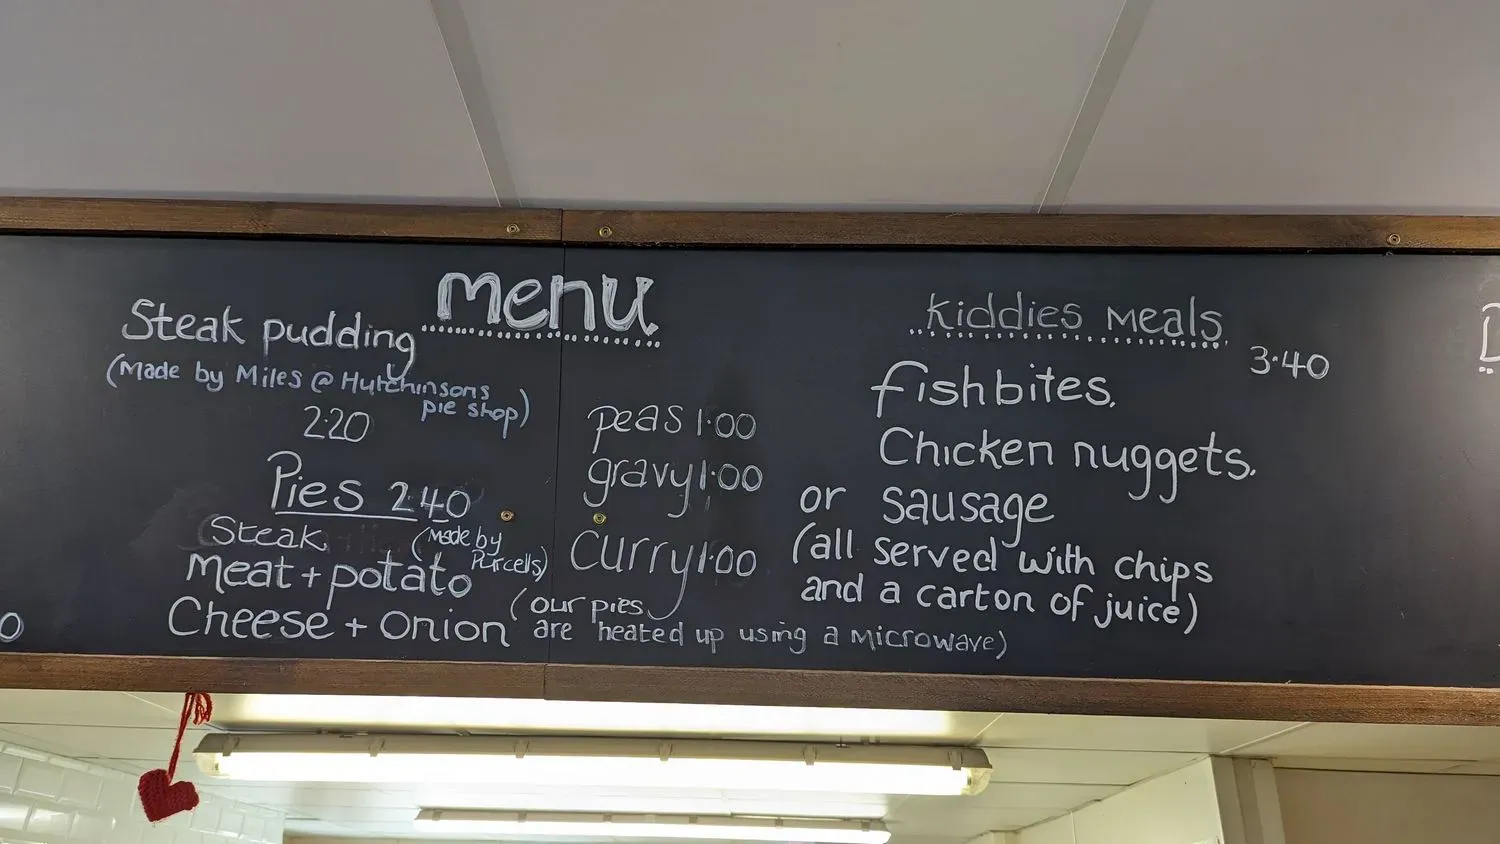 menu
Steak pudding
(Made by Miles @ Hutchinsons
pie shop)
2.20
Pies 2.40
Steak (Made by
Purcells)
Meat + potato
Cheese + Onion
peas 1.00
gravy 1.00
curry 1.00
(our pies
are heated up using a microwave)
kiddies Meals
3.40
fishbites.
Chicken nuggets.
or sausage
(all served with chips
and a carton of juice)